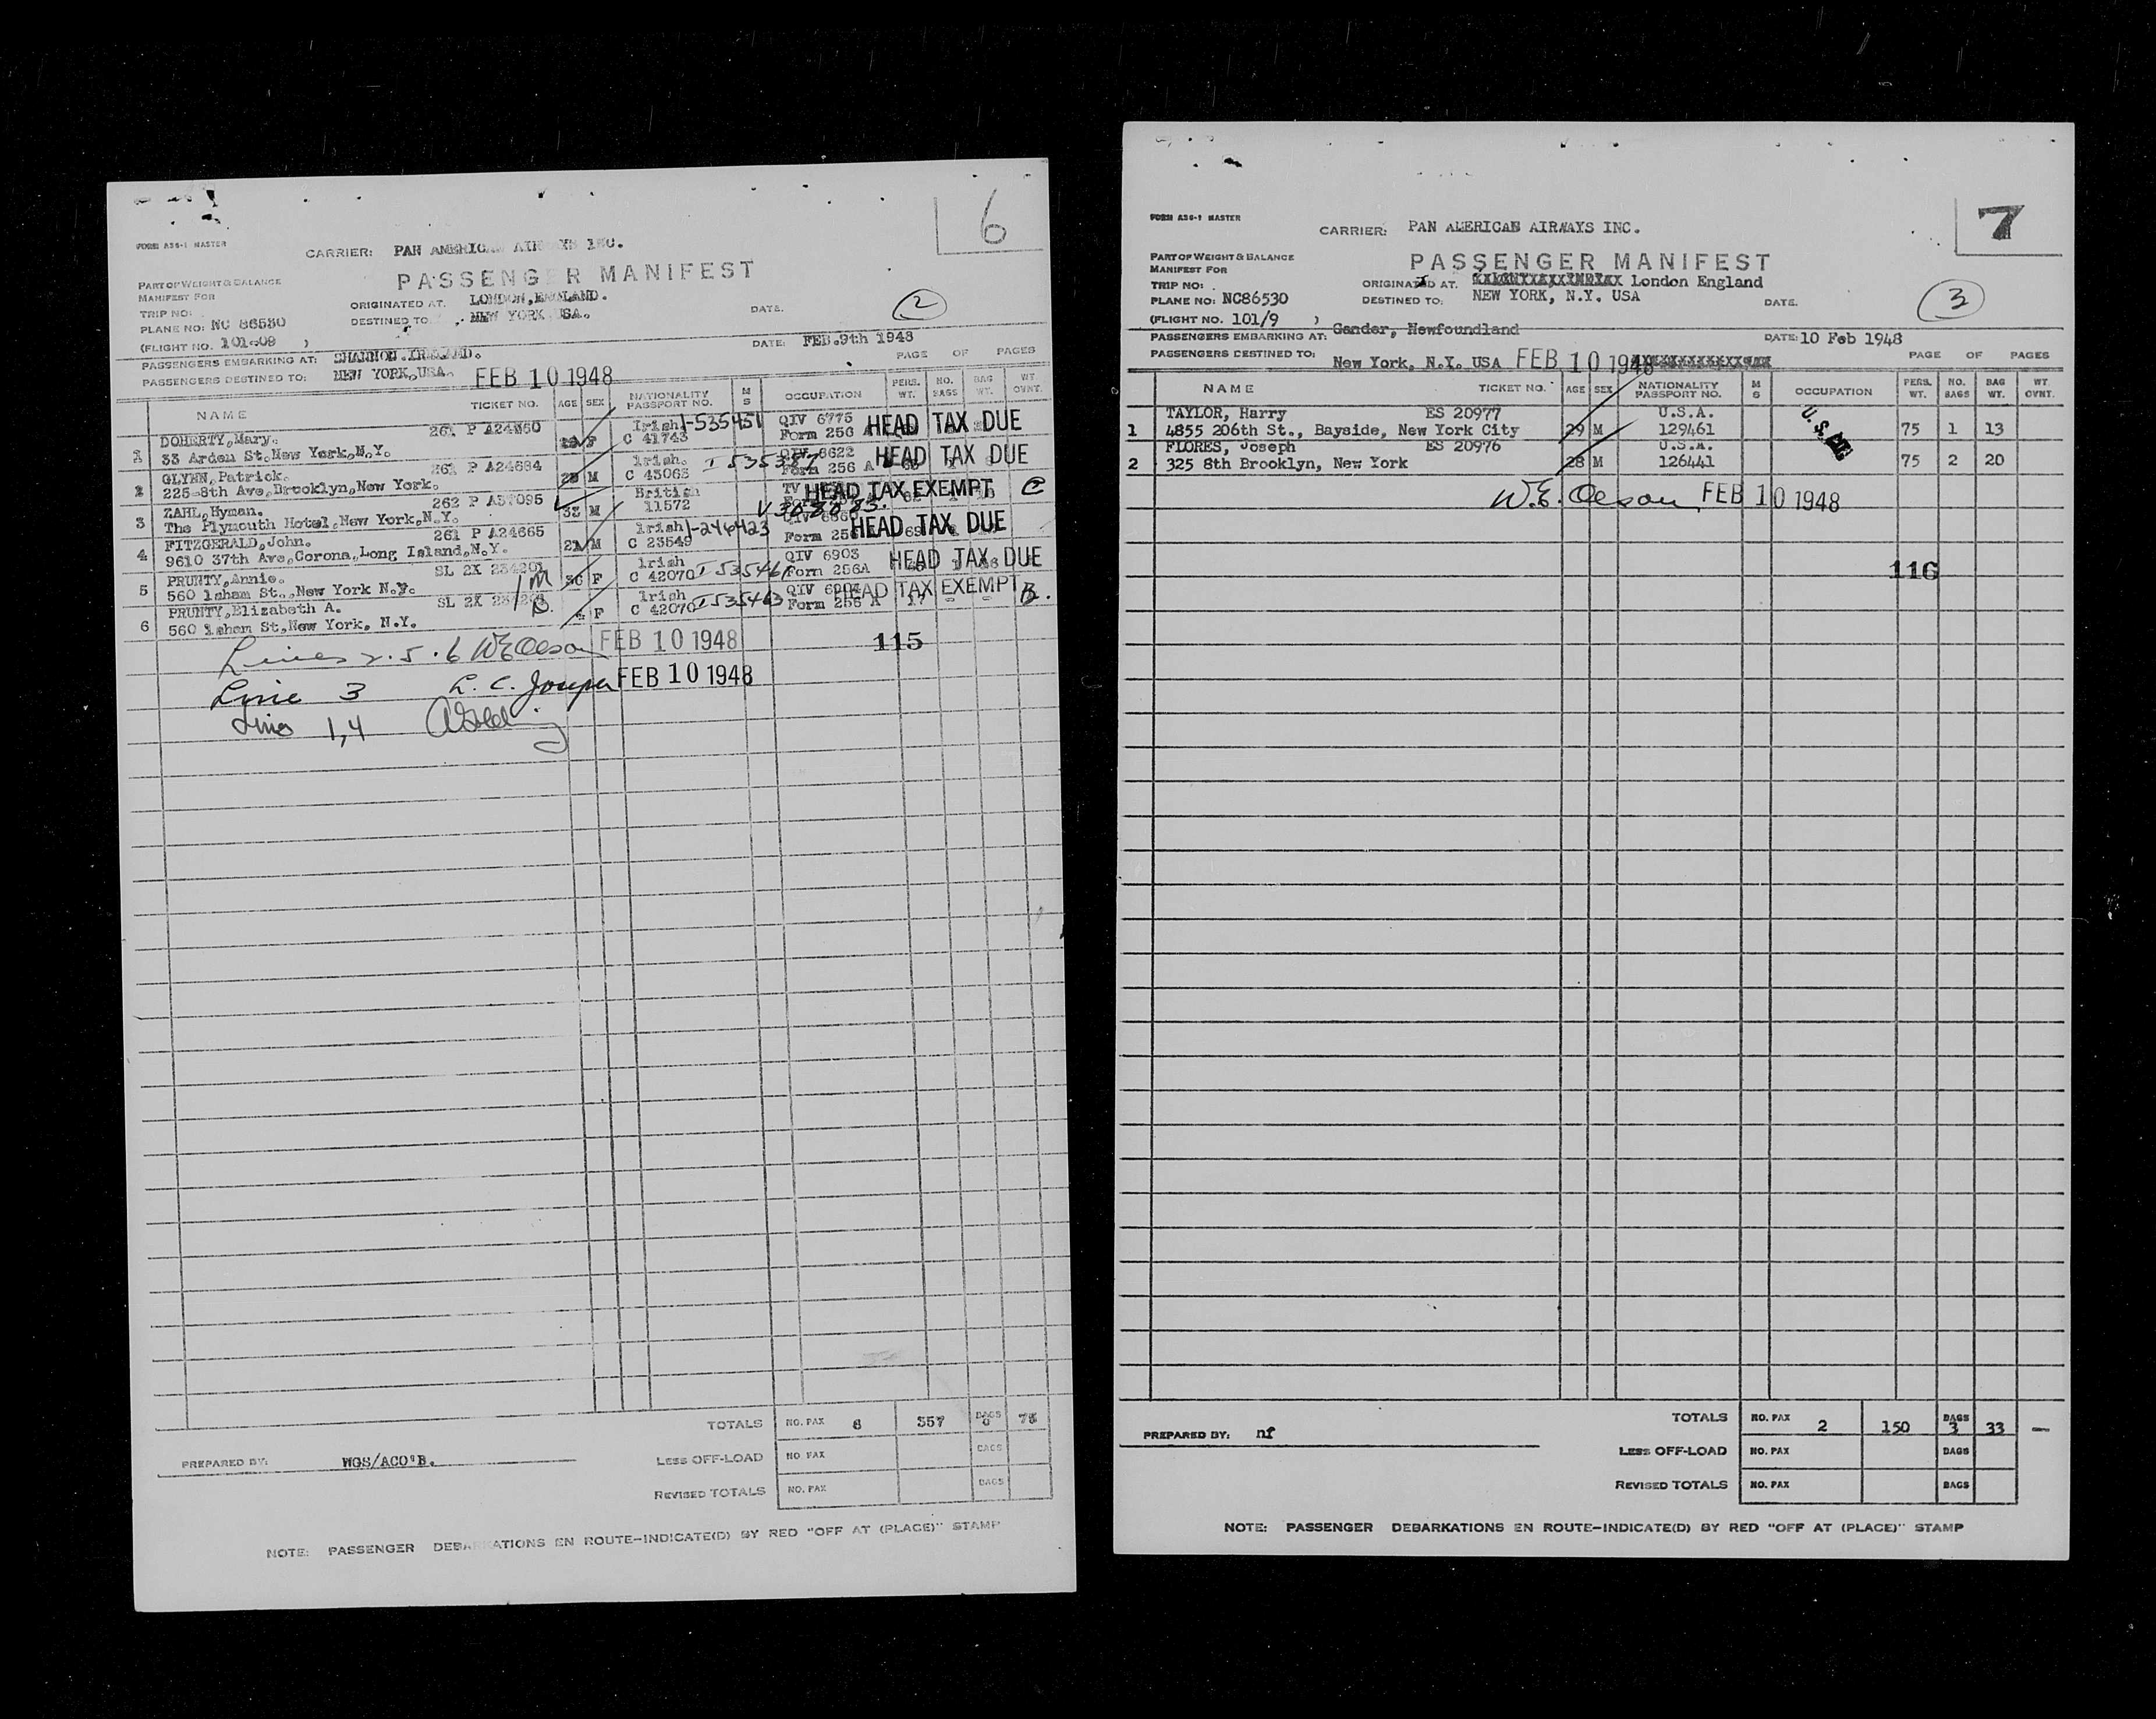 6
FORM A36-1 MASTER
CARRIER: PAN AMERICAN AIRWAYS INC.
PASSENGER MANIFEST
PART OF WEIGHT & BALANCE
MANIFEST FOR
TRIP NO:
PLANE NO: NC 86530
(FLIGHT NO. 101-09 )
ORIGINATED AT. LONDON, ENGLAND.
DESTINED TO NEW YORK USA.
DATE.
2
PASSENGERS EMBARKING AT: SHANNON. IRELAND. DATE: FEB.9th 1948
PASSENGERS DESTINED TO: NEW YORK, USA. FEB 10 1948 PAGE OF PAGES
NAME TICKET NO. AGE SEX NATIONALITY PASSPORT NO. M S OCCUPATION PERS. WT. NO. BAGS BAG WT. WT. OVNT.
DOHERTY, Mary. 261 P Irish I-535451 QIV 6775 HEAD TAX DUE
1 33 Arden St. New York, N.Y. F C 41743 Form 256 A
GLYNN, Patrick. 261 P A24684 Irish. QIV 6622 HEAD TAX DUE
2 225-8th Ave, Brooklyn, New York. M C 43063 Form 256 A
ZAHL, Hyman. 262 P British TV HEAD TAX EXEMPT C
3 The Plymouth Hotel, New York, N.Y. 33 M 11572 V308083.
FITZGERALD, John. 261 P A24665 Irish I-246423 HEAD TAX DUE
4 9610 37th Ave, Corona, Long Island, N.Y. M C 23549 Form 256
PRUNTY, Annie. SL 2X 234201 Irish QIV 6903 HEAD TAX DUE
5 560 Isham St., New York N.Y. F C 42070 Form 256A
PRUNTY, Elizabeth A. SL 2X Irish I535463 QIV HEAD TAX EXEMPT B.
6 560 Isham St, New York, N.Y. F C 42070 Form 256 A
Lines 2.5.6 WE Olson FEB 10 1948 115
Line 3 L. C. FEB 10 1948
Line 1,4
TOTALS NO. PAX 6 357 BAGS 75
PREPARED BY: WGS/ACO'B. LESS OFF-LOAD NO PAX BAGS
REVISED TOTALS NO. PAX BAGS
NOTE: PASSENGER DEBARKATIONS EN ROUTE-INDICATE(D) BY RED "OFF AT (PLACE)" STAMP
7
FORM A36-1 MASTER
CARRIER: PAN AMERICAN AIRWAYS INC.
PASSENGER MANIFEST
PART OF WEIGHT & BALANCE
MANIFEST FOR
TRIP NO:
PLANE NO: NC86530
(FLIGHT NO. 101/9 )
ORIGINATED AT. London England
DESTINED TO: NEW YORK, N.Y. USA DATE.
3
PASSENGERS EMBARKING AT: Gander, Newfoundland DATE: 10 Feb 1948
PASSENGERS DESTINED TO: New York, N.Y. USA FEB 10 1948 PAGE OF PAGES
NAME TICKET NO. AGE SEX NATIONALITY PASSPORT NO. M S OCCUPATION PERS. WT. NO. BAGS BAG WT. WT OVNT.
TAYLOR, Harry ES 20977 U.S.A.
1 4855 206th St., Bayside, New York City 29 M 129461 75 1 13
FLORES, Joseph ES 20976 U.S.A.
2 325 8th Brooklyn, New York 28 M 126441 75 2 20
W.E. Olson FEB 10 1948
116
TOTALS NO. PAX 2 150 BAGS 3 33 —
PREPARED BY: nf LESS OFF-LOAD NO. PAX BAGS
REVISED TOTALS NO. PAX BAGS
NOTE: PASSENGER DEBARKATIONS EN ROUTE-INDICATE(D) BY RED "OFF AT (PLACE)" STAMP